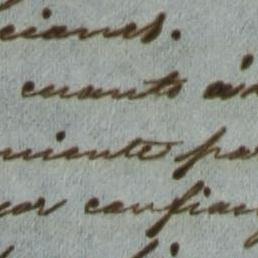 ciones.
cuanto á
niente pa
yor confian